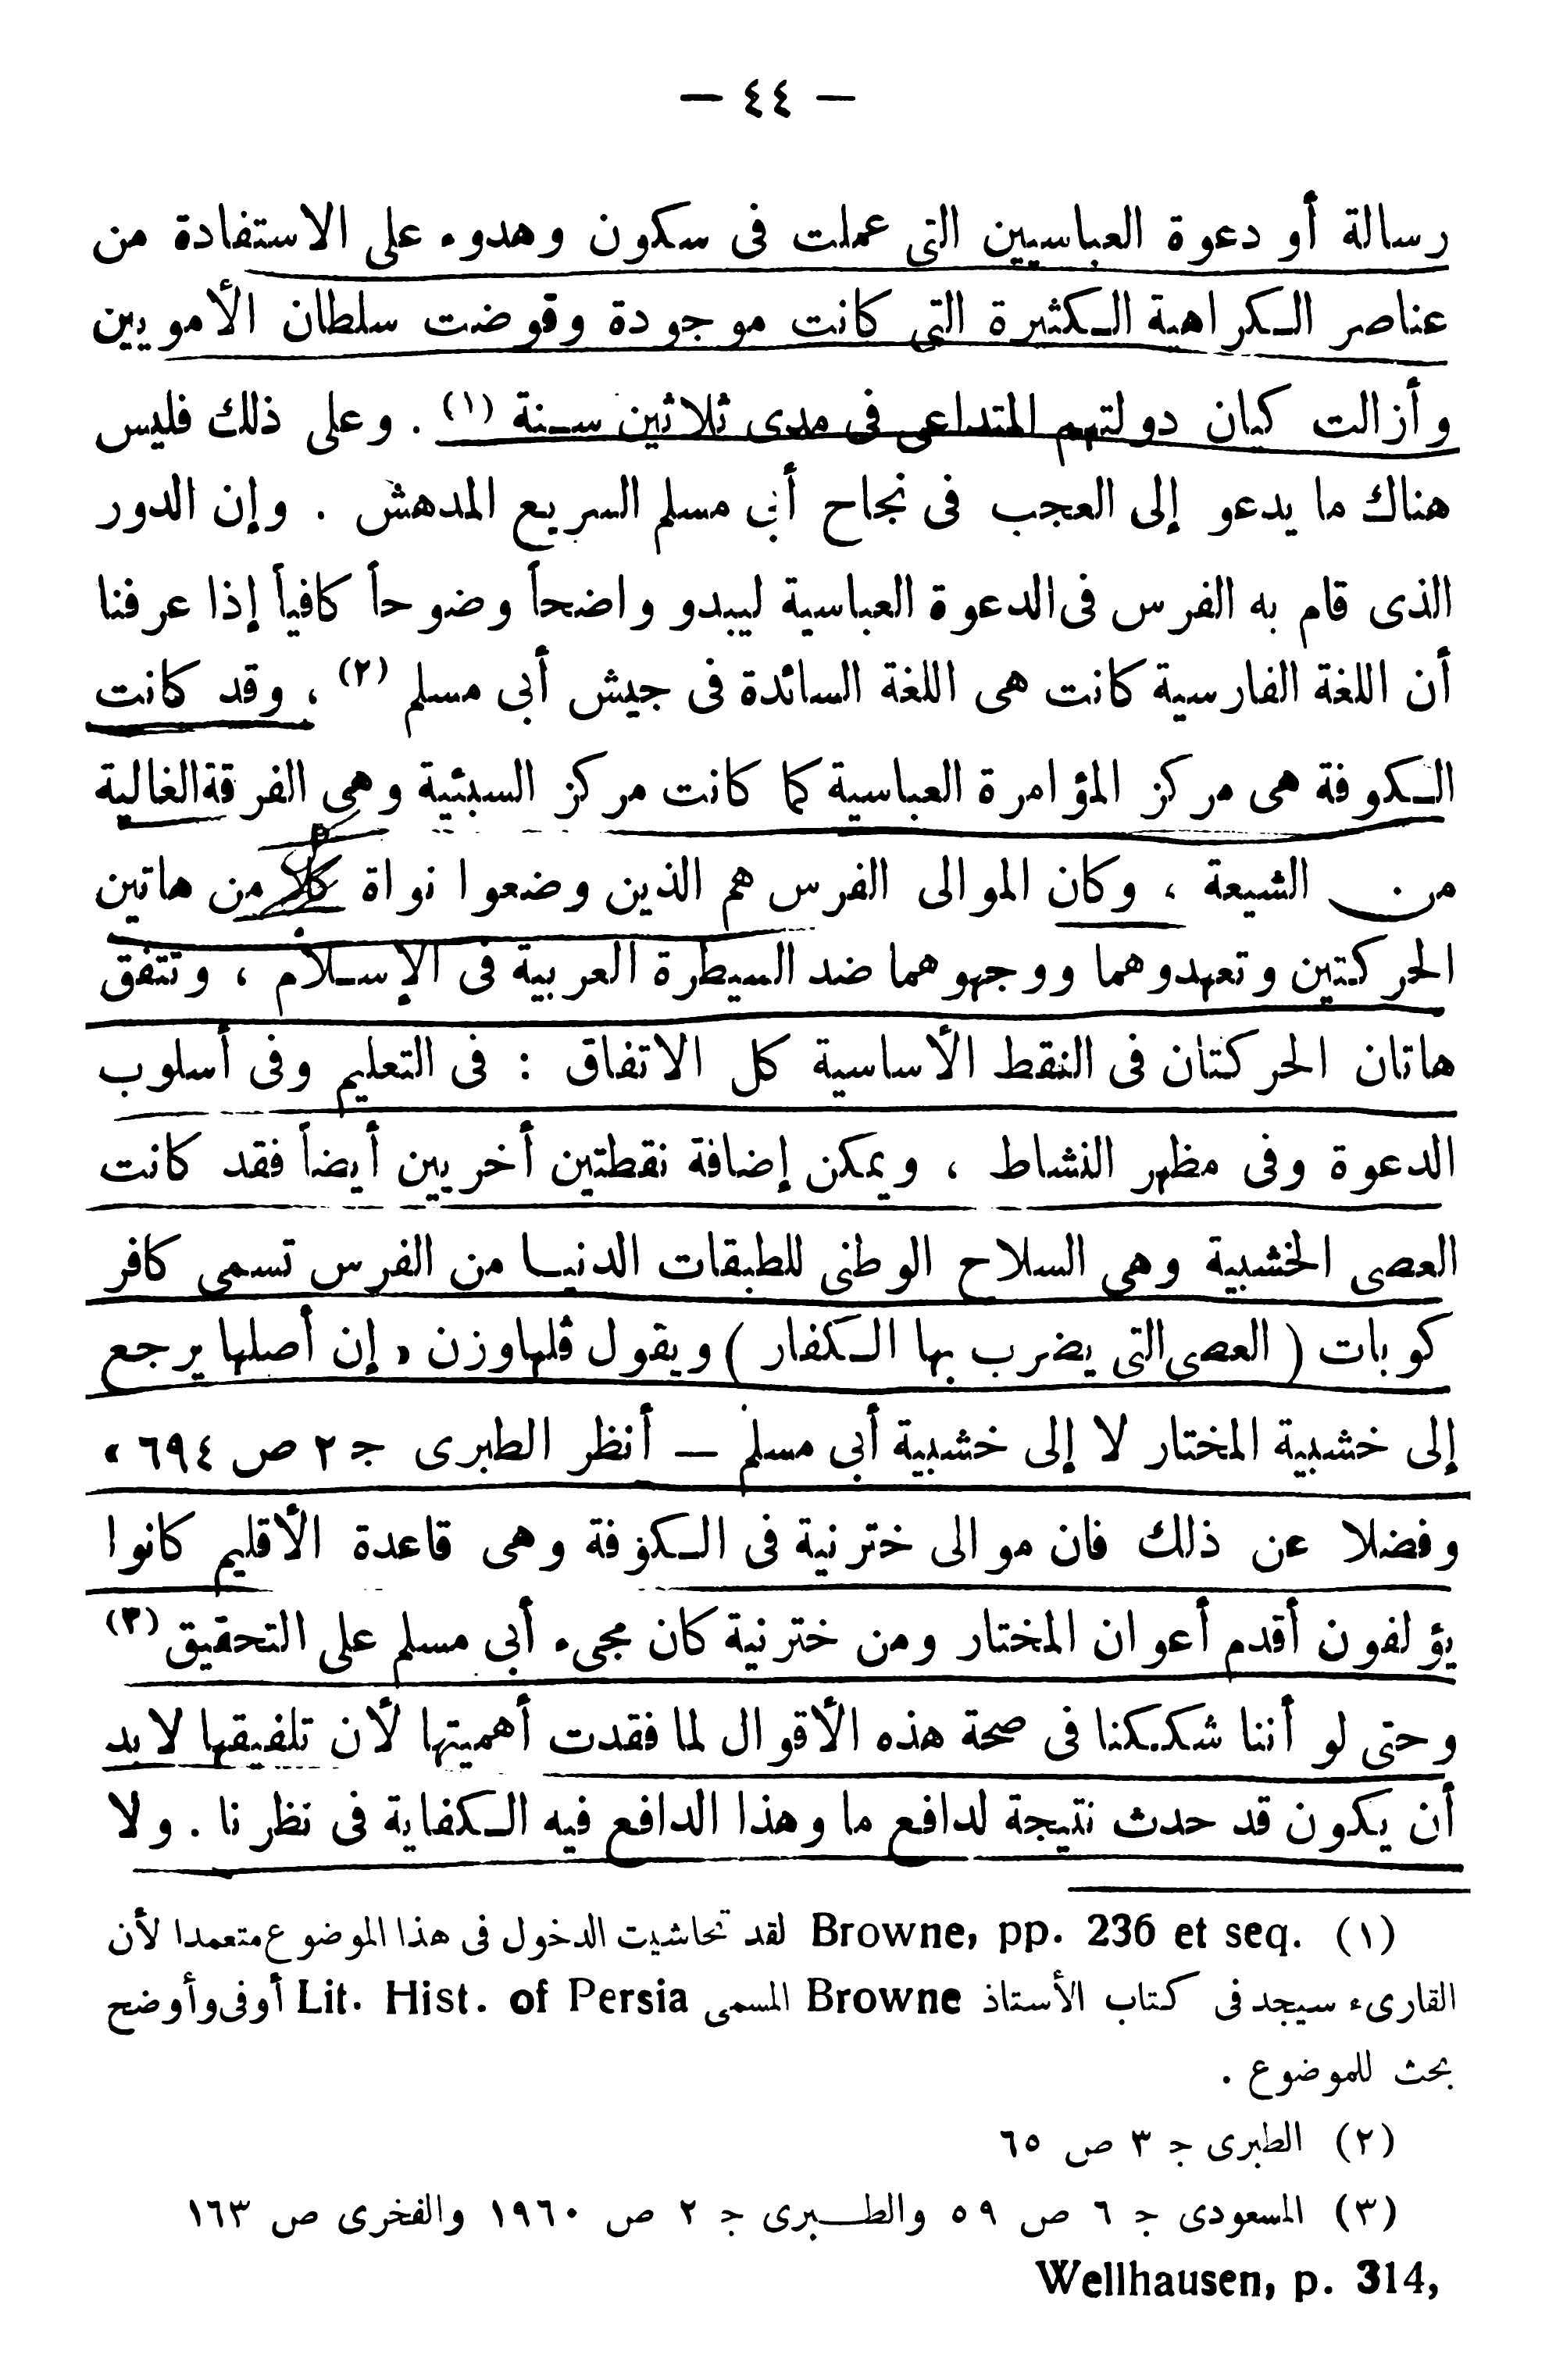 — ٤٤ —
رسالة أو دعوة العباسيين التى عملت فى سكون وهدوء على الاستفادة من
عناصر الكراهية الكثيرة التى كانت موجودة وقوضت سلطان الأمويين
وأزالت كيان دولتهم المتداعى فى مدى ثلاثين سنة (١) . وعلى ذلك فليس
هناك ما يدعو إلى العجب فى نجاح أبى مسلم السريع المدهش . وإن الدور
الذى قام به الفرس فى الدعوة العباسية ليبدو واضحاً وضوحاً كافياً إذا عرفنا
أن اللغة الفارسية كانت هى اللغة السائدة فى جيش أبى مسلم (٢) ، وقد كانت
الكوفة هى مركز المؤامرة العباسية كما كانت مركز السبئية وهى الفرقة الغالية
من الشيعة ، وكان الموالى الفرس هم الذين وضعوا نواة من هاتين
الحركتين وتعهدوهما ووجهوهما ضد السيطرة العربية فى الإسلام ، وتتفق
هاتان الحركتان فى النقط الأساسية كل الاتفاق : فى التعليم وفى أسلوب
الدعوة وفى مظهر النشاط ، ويمكن إضافة نقطتين أخريين أيضاً فقد كانت
العصى الخشبية وهى السلاح الوطنى للطبقات الدنيا من الفرس تسمى كافر
كوبات ( العصى التى يضرب بها الكفار ) ويقول ڤلهاوزن « إن أصلها يرجع
إلى خشبية المختار لا إلى خشبية أبى مسلم — أنظر الطبرى ج ٢ ص ٦٩٤ »
وفضلا عن ذلك فان موالى خترنية فى الكوفة وهى قاعدة الأقليم كانوا
يؤلفون أقدم أعوان المختار ومن خترنية كان مجىء أبى مسلم على التحقيق (٣)
وحتى لو أننا شككنا فى صحة هذه الأقوال لما فقدت أهميتها لأن تلفيقها لابد
أن يكون قد حدث نتيجة لدافع ما وهذا الدافع فيه الكفاية فى نظرنا . ولا
(١) Browne, pp. 236 et seq. لقد تحاشيت الدخول فى هذا الموضوع متعمدا لأن
القارىء سيجد فى كتاب الأستاذ Browne المسمى Lit. Hist. of Persia أوفى وأوضح
بحث للموضوع .
(٢) الطبرى ج ٣ ص ٦٥
(٣) المسعودى ج ٦ ص ٥٩ والطبرى ج ٢ ص ١٩٦٠ والفخرى ص ١٦٣
Wellhausen, p. 314,